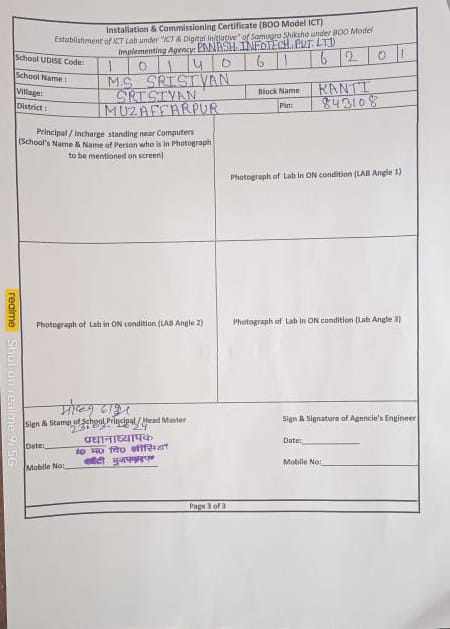 Installation & Commissioning Certificate (BOO Model ICT)
Establishment of ICT Lab under "ICT & Digital Initiative" of Samagra Shiksha under BOO Model
Implementing Agency: PANASH INFOTECH PVT. LTD
School UDISE Code: 1 0 1 4 0 6 1 6 2 0 1
School Name : M.S SRISIYAN
Village: SRISIYAN Block Name KANTI
District : MUZAFFARPUR Pin: 843108
Principal / Incharge standing near Computers
(School's Name & Name of Person who is in Photograph
to be mentioned on screen)
Photograph of Lab in ON condition (LAB Angle 1)
Photograph of Lab in ON condition (LAB Angle 2)
Photograph of Lab in ON condition (Lab Angle 3)
Sign & Stamp of School Principal / Head Master
Sign & Signature of Agencie's Engineer
Date:
प्रधानाध्यापक
Date:
Mobile No:
Mobile No:
Page 3 of 3
realme Shot on realme 9i 5G